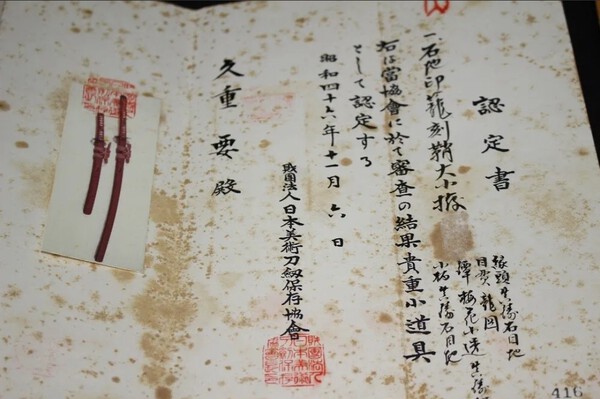 認定書
一、石地印籠刻鞘大小拵
縁頭真鍮石目地
目貫龍図
鐔梅花小透真鍮
小柄真鍮石目地
右は當協會に於て審査の結果貴重小道具
として認定する
昭和四十六年十一月六日
財團法人日本美術刀劔保存協會
久重要殿
416